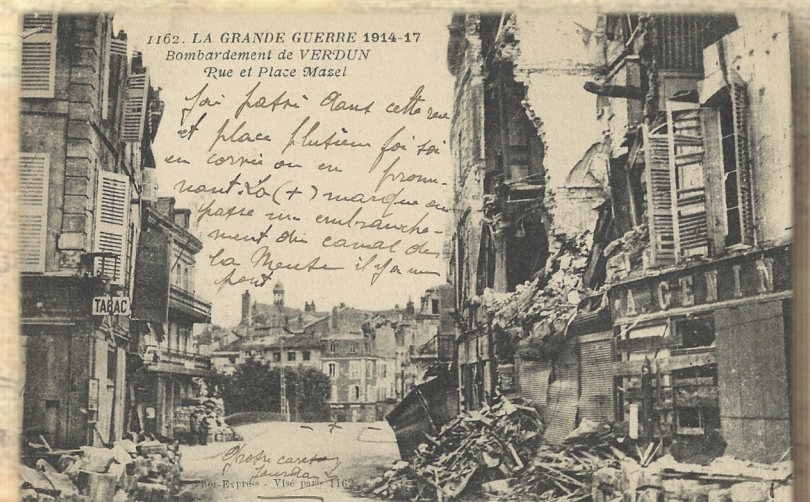 1162. LA GRANDE GUERRE 1914-17
Bombardement de VERDUN
Rue et Place Mazel
J'ai passé dans cette rue
et place plusieur foi soi
en corvée ou en prome-
nant. La (+) marque ou
passe un embranche-
ment du canal de
la Meuse il y a un
pont
TABAC
A GENIN
- + -
Phot-Express - Visé paris 1162